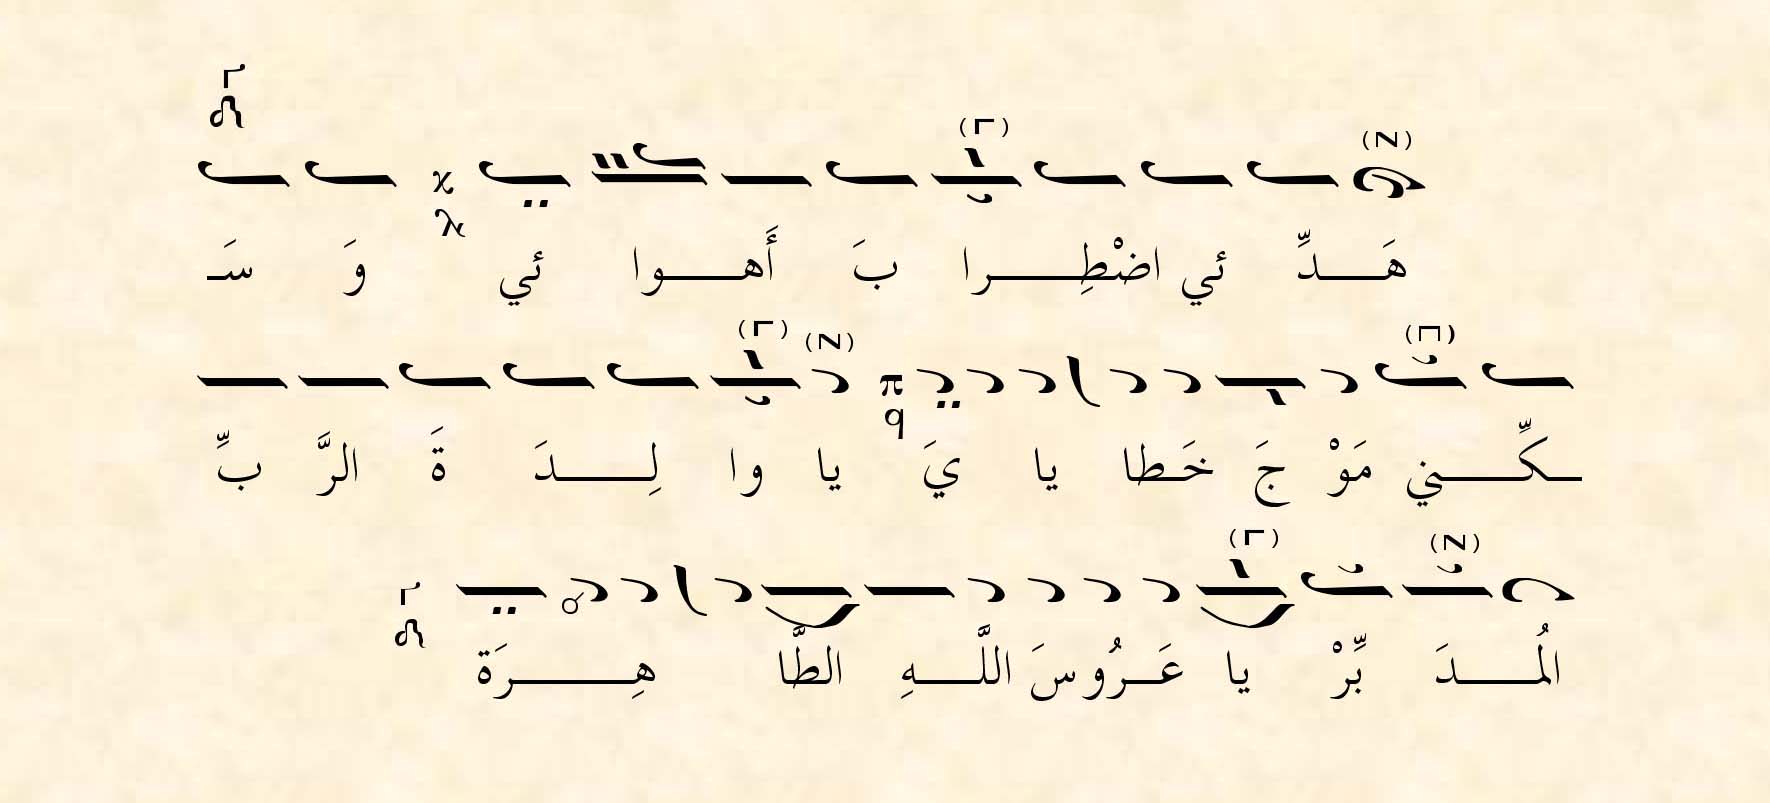 هَـــدِّ ئي اضْطِـــرا بَ أَهـــوا ئي وَ سَـ
ـكِّـــني مَوْ جَ خَـطا يا يَ يا وا لِـــدَ ةَ الرَّ بِّ
المُـــدَ بِّرْ يا عَـرُوسَ اللَّـــهِ الطَّا هِـــرَة